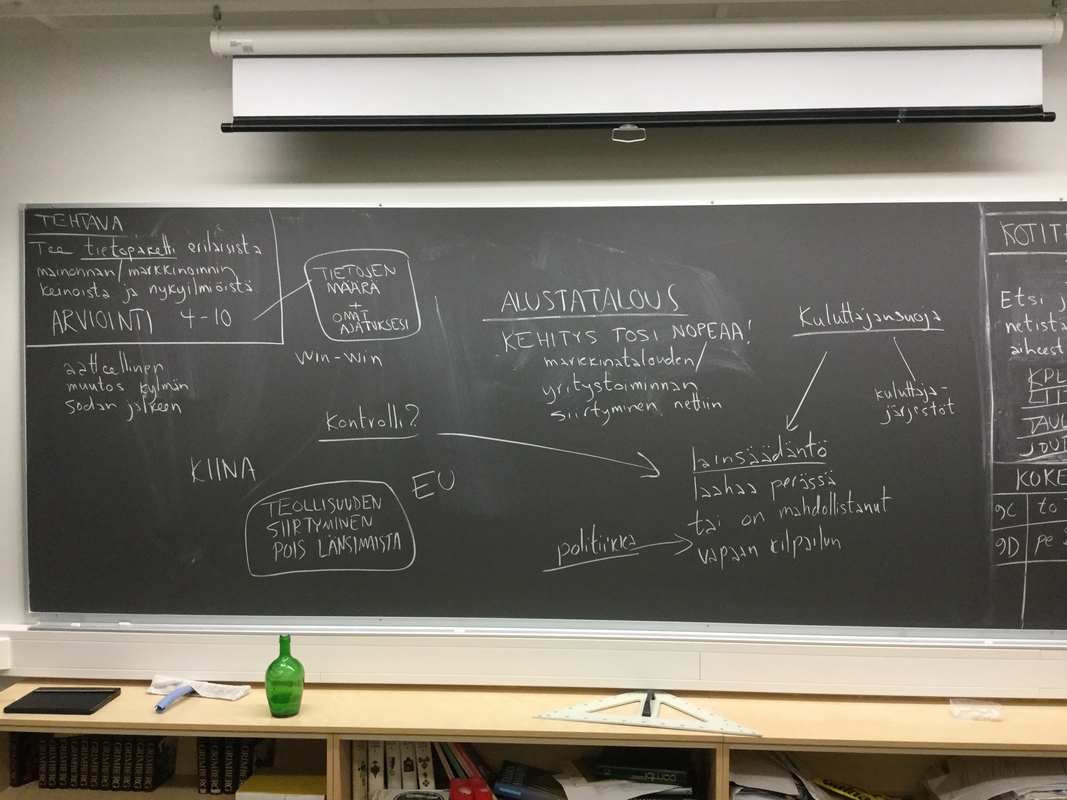 TEHTÄVÄ
Tee tietopaketti erilaisista
mainonnan/markkinoinnin
keinoista ja nykyilmiöistä
ARVIOINTI 4-10
TIETOJEN
MÄÄRÄ
+
OMAT
AJATUKSESI
Win-Win
aatteellinen
muutos kylmän
sodan jälkeen
Kontrolli?
KIINA
EU
TEOLLISUUDEN
SIIRTYMINEN
POIS LÄNSIMAISTA
ALUSTATALOUS
KEHITYS TOSI NOPEAA!
markkinatalouden/
yritystoiminnan
siirtyminen nettiin
Kuluttajansuoja
kuluttaja-
järjestöt
lainsäädäntö
laahaa perässä
tai on mahdollistanut
vapaan kilpailun
politiikka
KOTIT
Etsi j
netistä
aiheest
KPL
TAUL
JOUT
KOKE
9C to
9D pe
GRIMBERG
GRIMBERG
GRIMBERG
combi